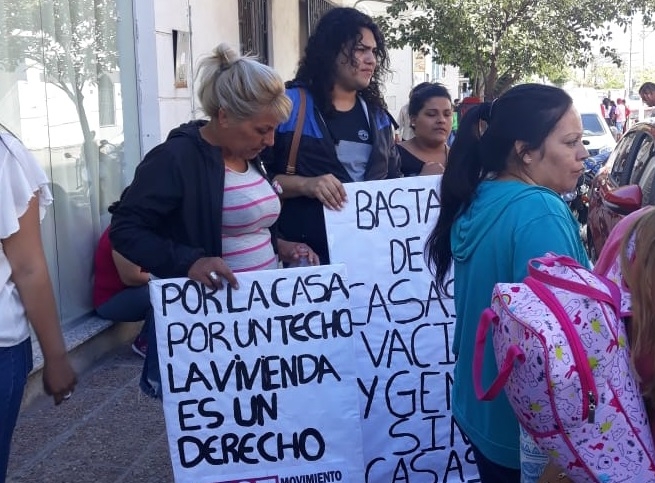 POR LA CASA-
POR UN TECHO
LA VIVIENDA
ES UN
DERECHO
MOVIMIENTO
BASTA
DE
CASAS
VACI
Y GEN
SIN
CASAS